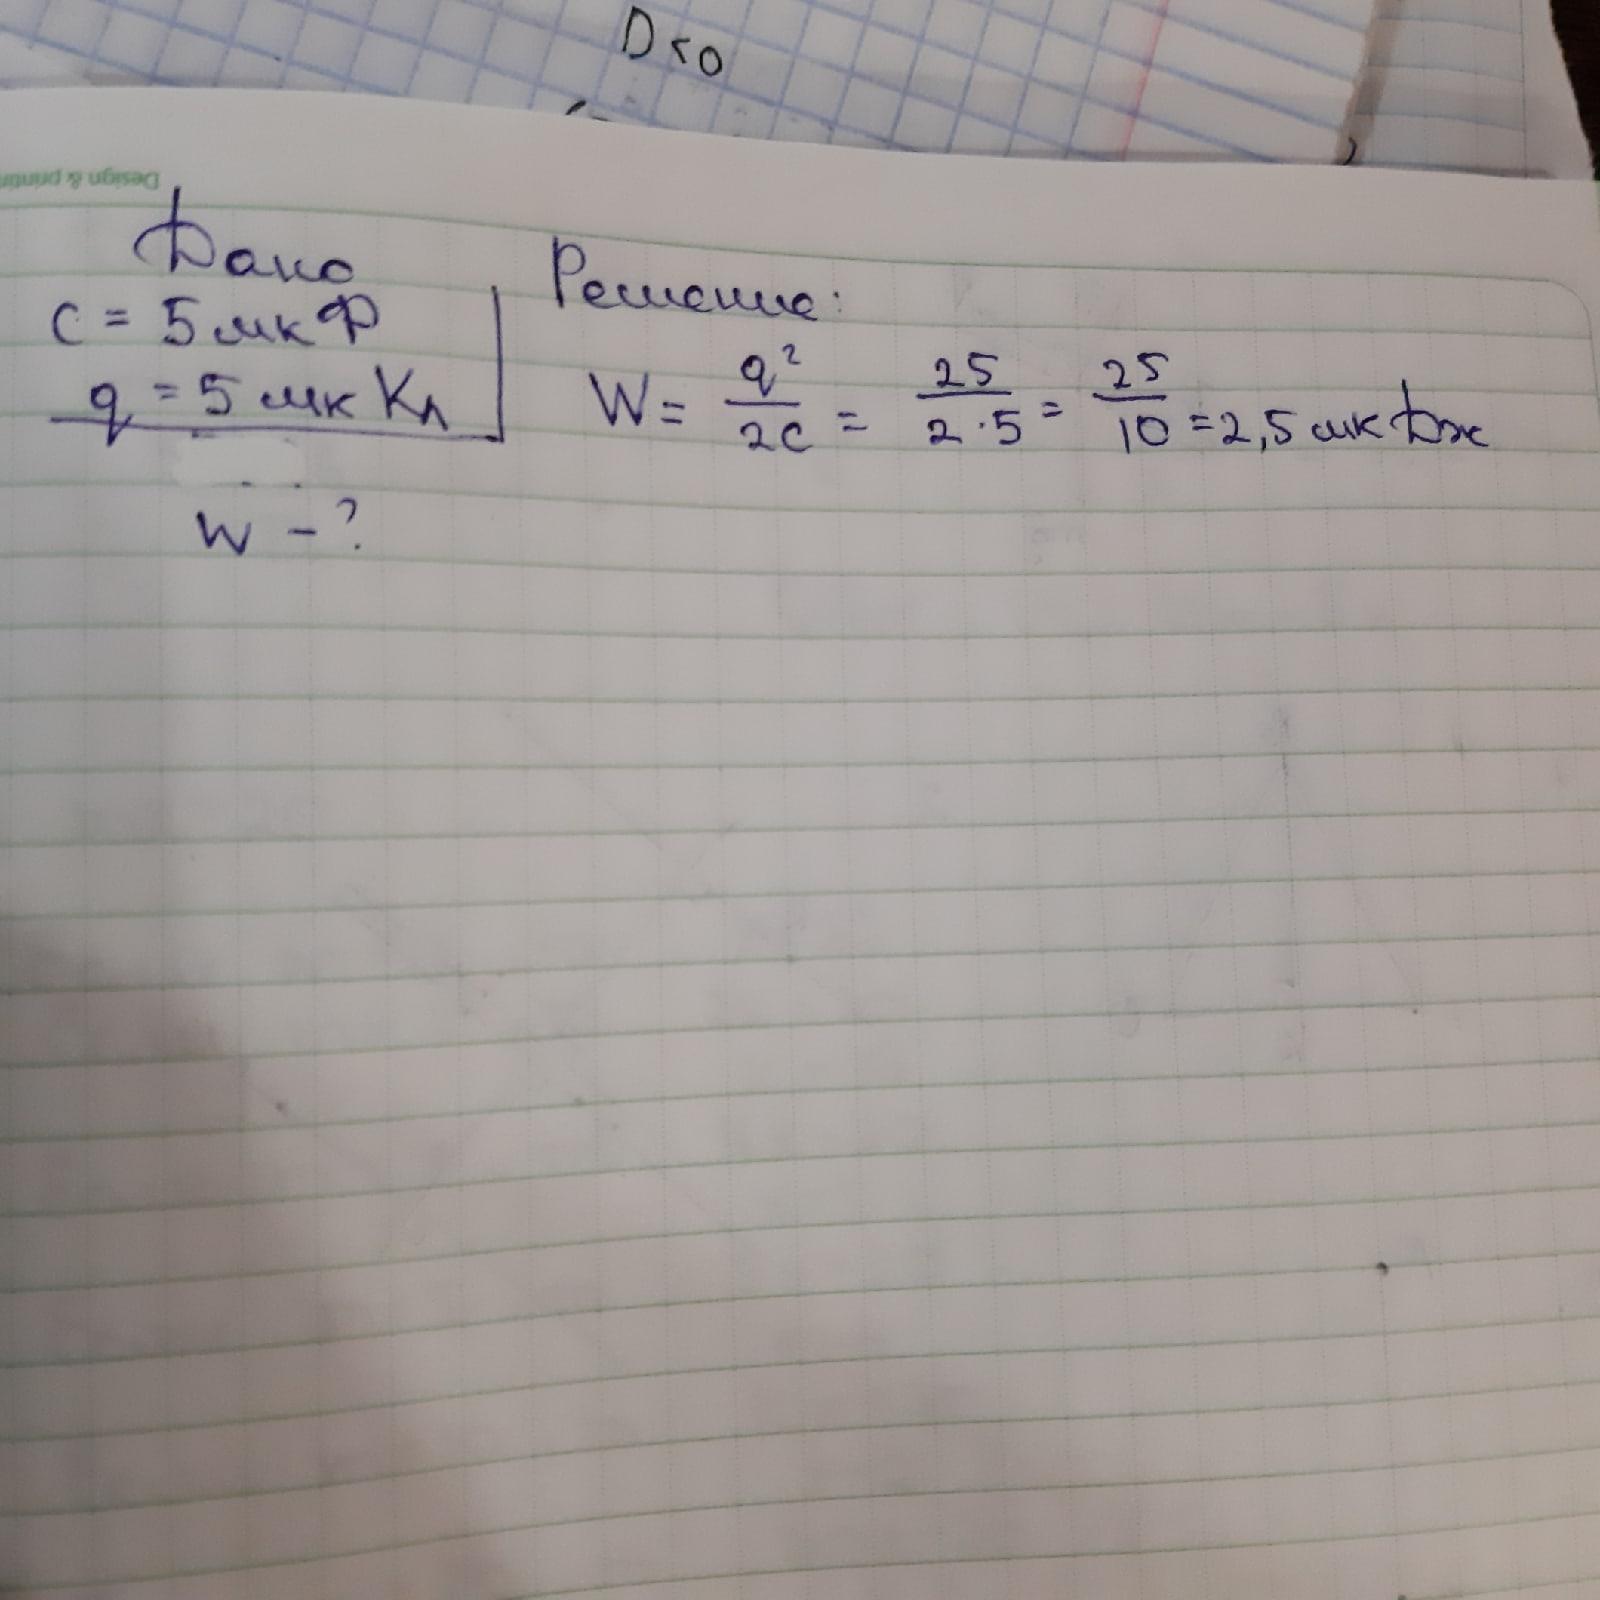 D<0
Design & printin
Дано
C = 5 мкФ
q = 5 мк Кл
W - ?
Решение:
W = q²/2C = 25/2·5 = 25/10 = 2,5 мк Дж